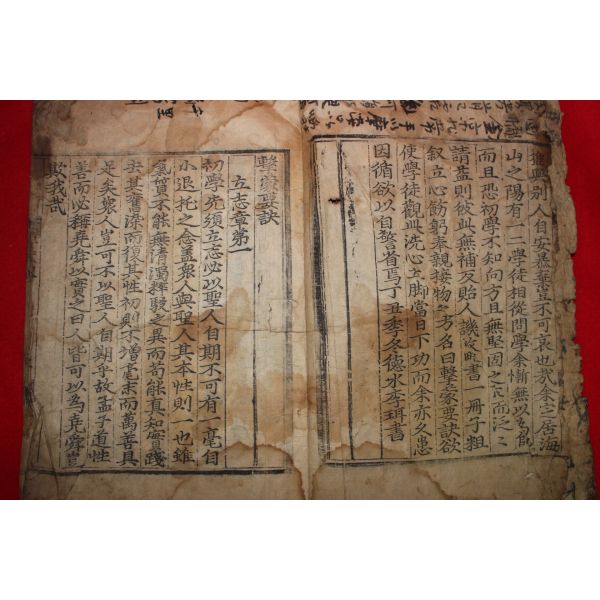 與別人自安暴棄豈不可哀也哉余定居海
山之陽有一二學徒相從問學余慚無以爲師
而且恐初學不知向方且無堅固之志而泛泛
請益則彼此無補反貽人譏故略書一冊子粗
叙立心飭躬奉親接物之方名曰擊蒙要訣欲
使學徒觀此洗心立脚當日下功而余亦久患
因循欲以自警省焉丁丑季冬德水李珥書
擊蒙要訣
立志章第一
初學先須立志必以聖人自期不可有一毫自
小退托之念盖衆人與聖人其本性則一也雖
氣質不能無清濁粹駁之異而苟能真知實踐
去其舊染而復其性初則不增毫末而萬善具
足矣衆人豈可不以聖人自期乎故孟子道性
善而必稱堯舜以實之曰人皆可以為堯舜豈
欺我哉